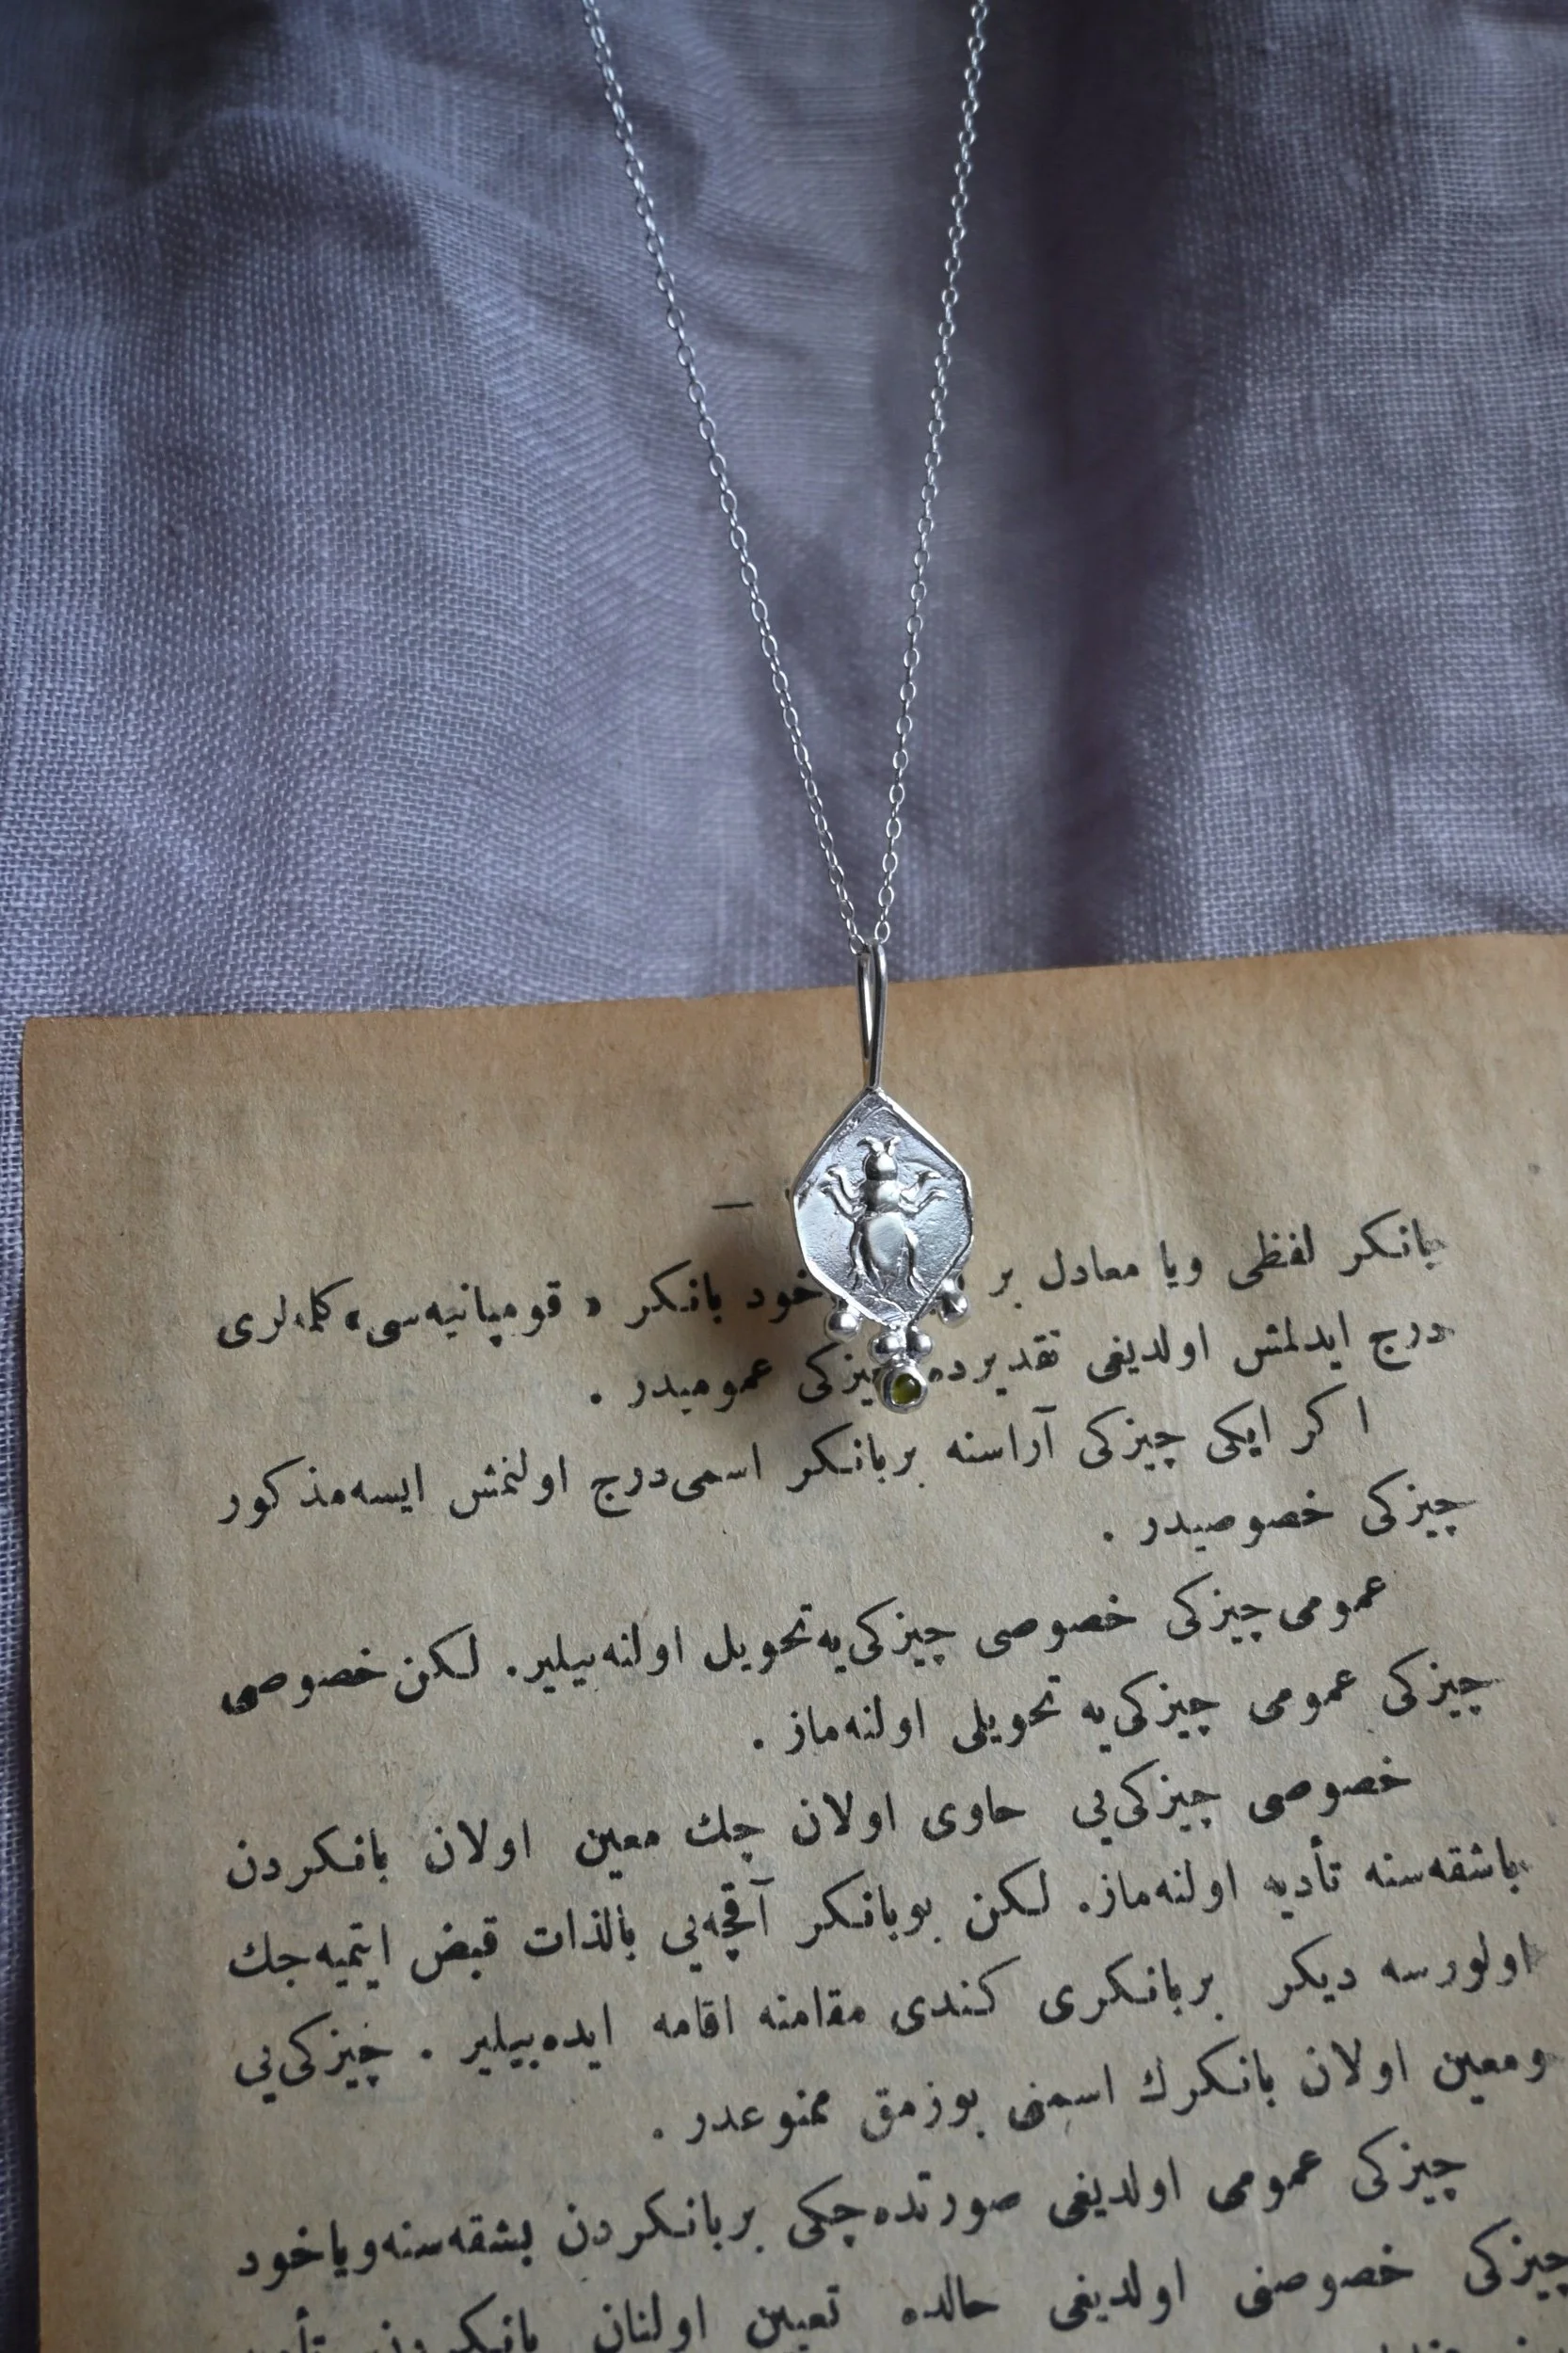 بانكر لفظی ويا معادل بر خود بانكر « قومپانیه‌سی » كلمه‌لری
درج ايدلمش اولديغی تقديرده چیزكی عموميدر .
اكر ايكی چيزكی آراسنه بربانكر اسمی درج اولنمش ايسه مذكور
چيزكی خصوصيدر .
عمومی چيزكی خصوصی چيزكی‌يه تحويل اولنه‌بيلير. لكن خصوصی
چيزكی عمومی چيزكی‌يه تحويلی اولنه‌ماز .
خصوصی چيزكی‌يی حاوی اولان چك معين اولان بانكردن
باشقه‌سنه تأديه اولنه‌ماز. لكن بوبانكر آقچه‌يی بالذات قبض ايتميه‌جك
اولورسه ديكر بربانكری كندی مقامنه اقامه ايده‌بيلير . چيزكی‌يی
ومعين اولان بانكرك اسمنی بوزمق ممنوعدر .
چيزكی عمومی اولديغی صورتده چكی بربانكردن بشقه‌سنه وياخود
چيزكی خصوصی اولديغی حالده تعيين اولنان بانكردن